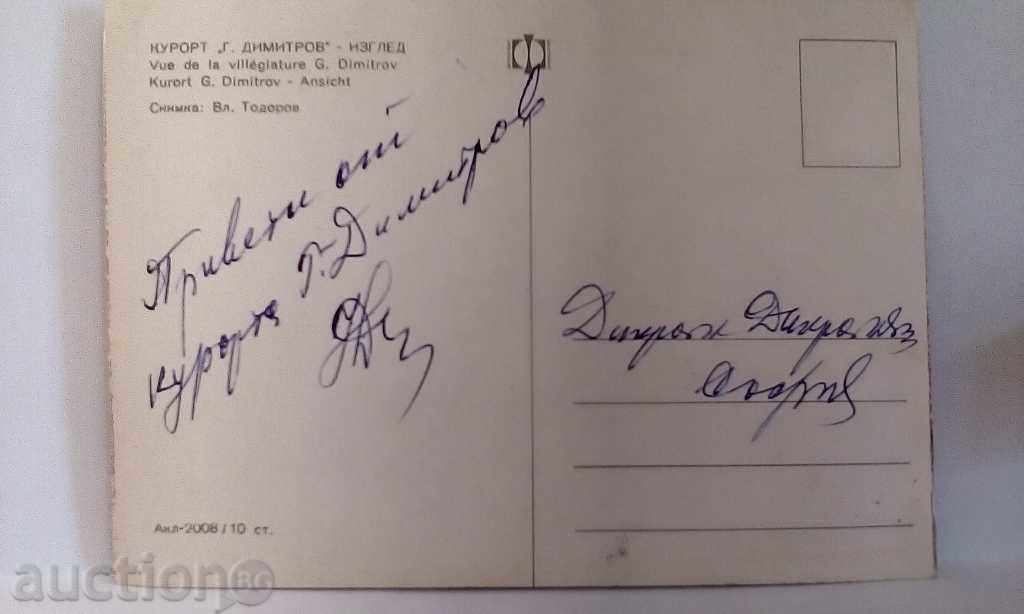 КУРОРТ „Г. ДИМИТРОВ" - ИЗГЛЕД
Vue de la villégiature G. Dimitrov
Kurort G. Dimitrov - Ansicht
Снимка: Вл. Тодоров
Привети от
курорта Г. Димитров
Дикран Дикранян
София
Акл-2008/10 ст.
auctionBG